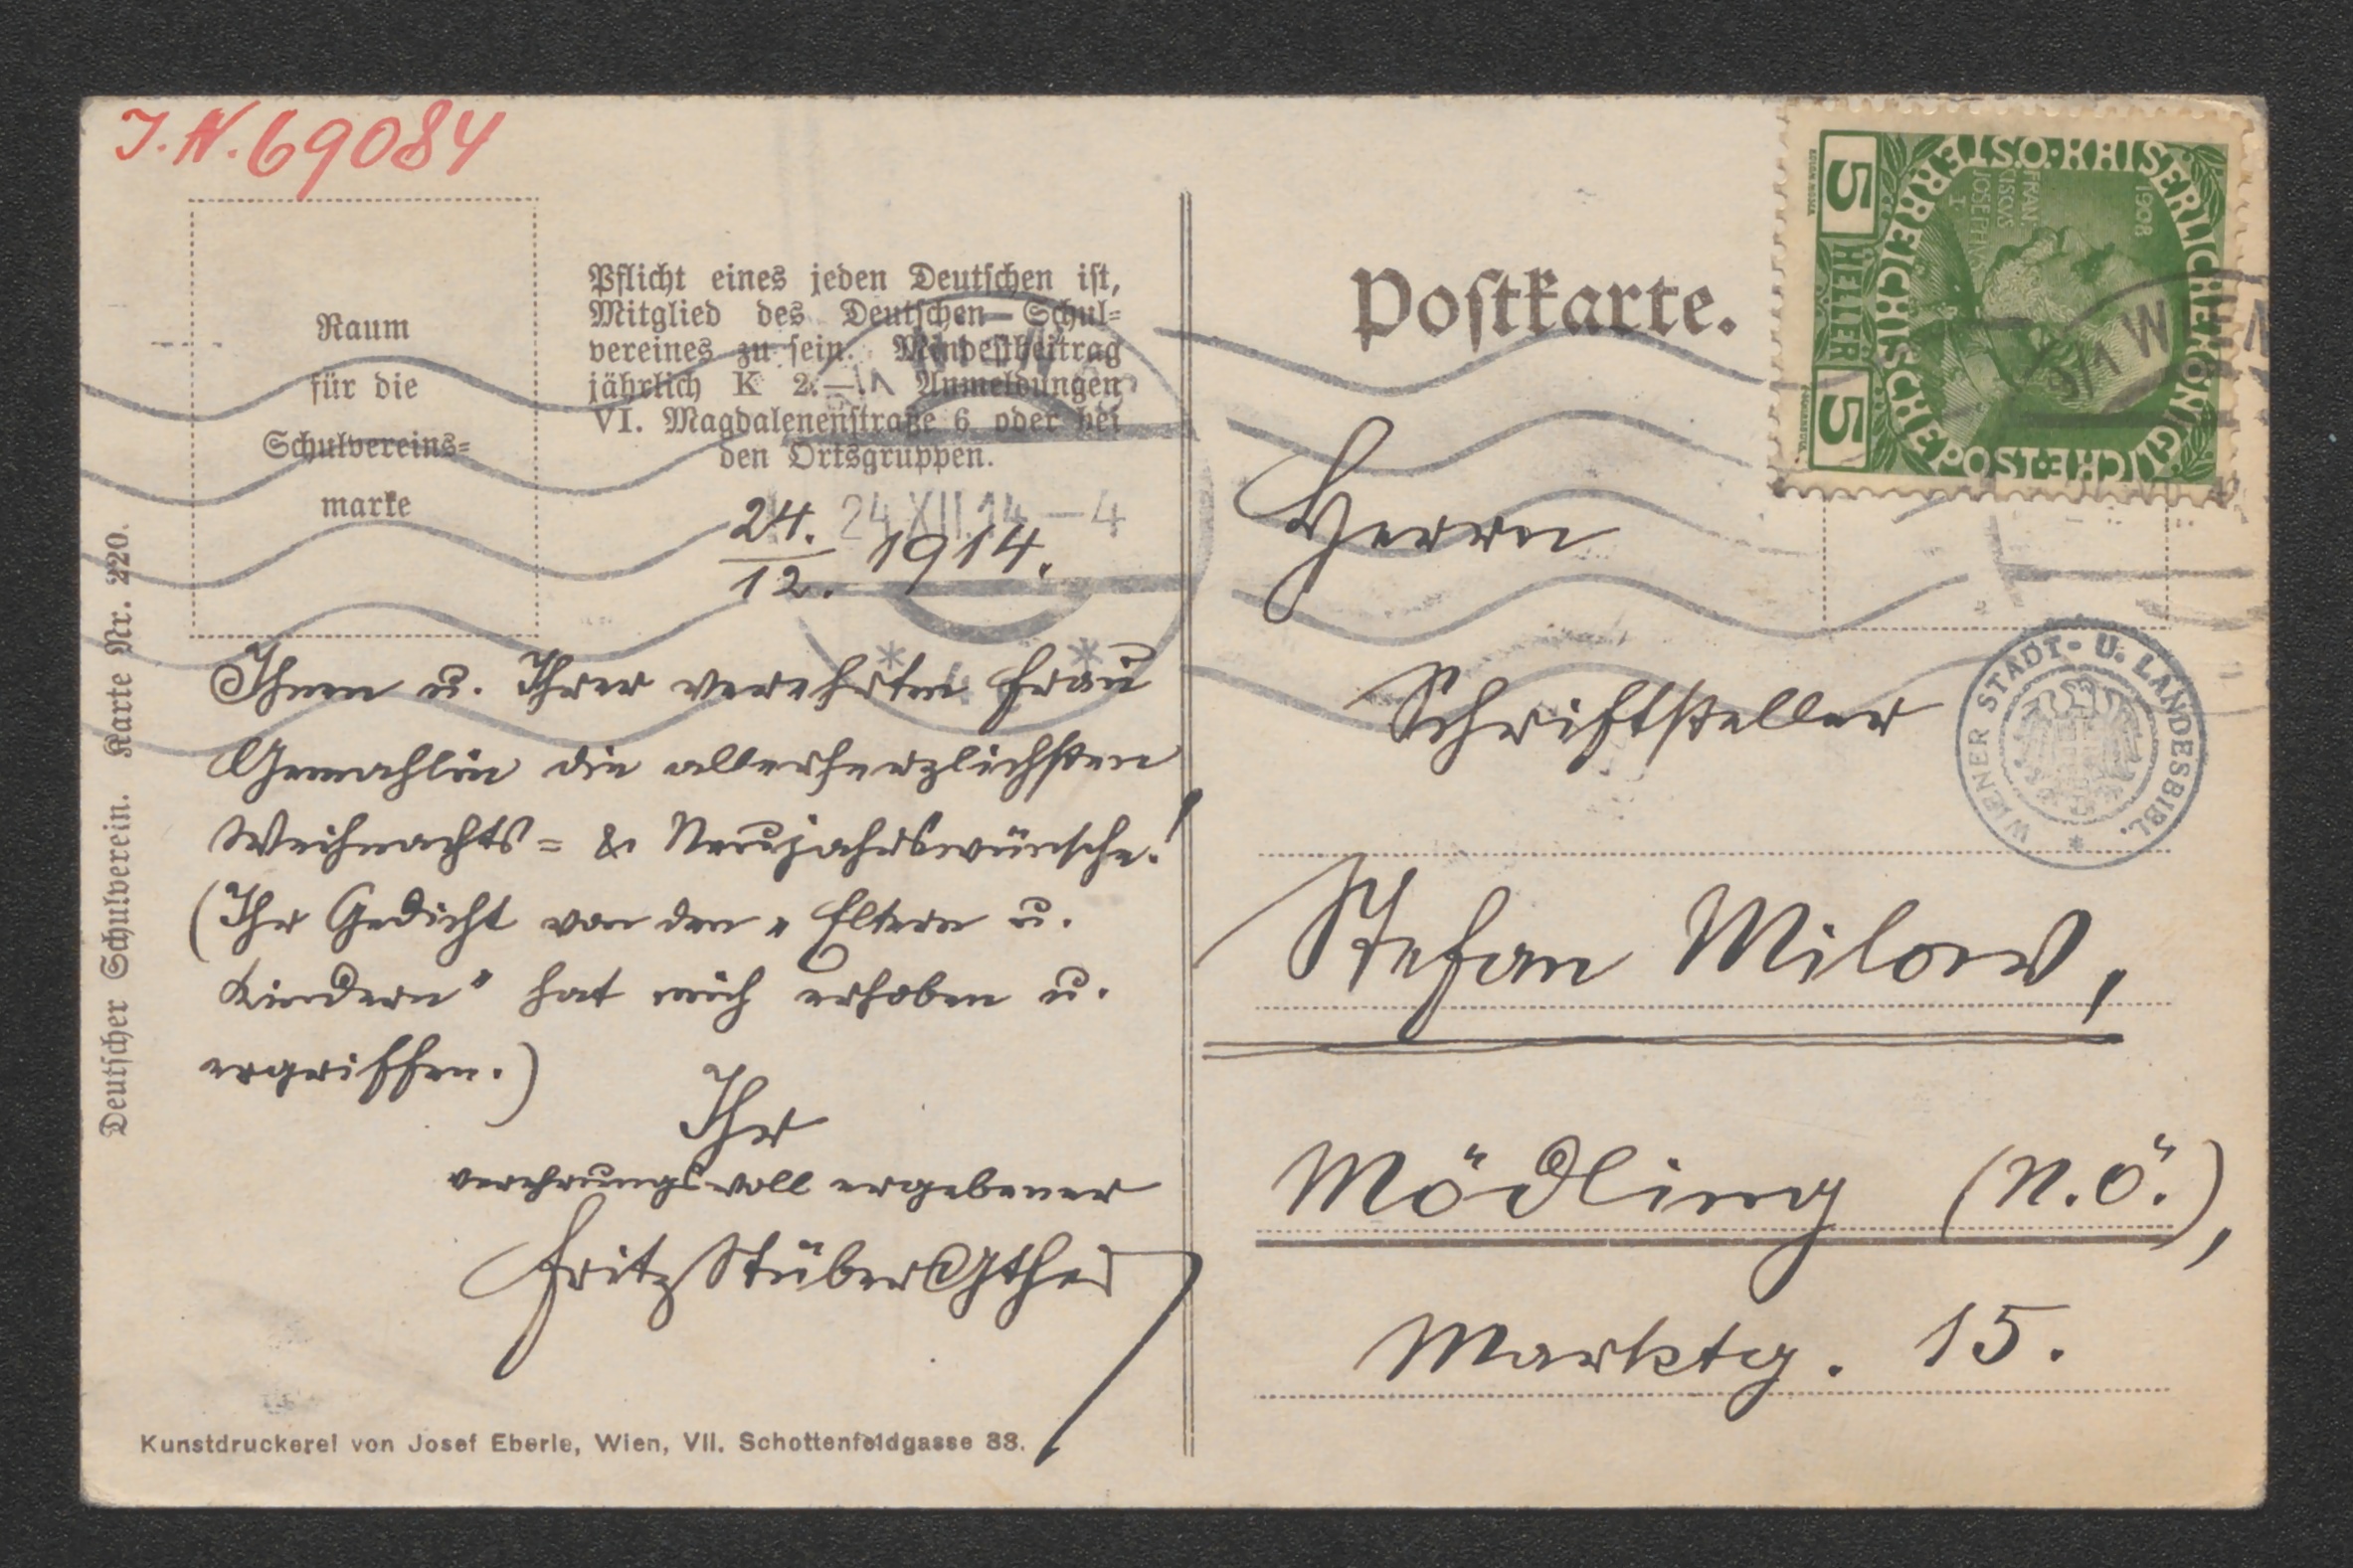 J.N. 69084
Raum
für die
Schulvereins-
marke
Pflicht eines jeden Deutschen ist,
Mitglied des Deutschen Schul-
vereines zu sein. Mindestbeitrag
jährlich K 2.— Anmeldungen
VI. Magdalenenstraße 6 oder bei
den Ortsgruppen.
24 XII 14 – 4
24./12. 1914.
Ihnen u. Ihrer verehrten Frau
Gemahlin die allerherzlichsten
Weihnachts= & Neujahrswünsche!
(Ihr Gedicht von den „Eltern u.
Kindern“ hat mich erhoben u.
ergriffen.)
Ihr
verehrungsvoll ergebener
Fritz Stüber
Kunstdruckerei von Josef Eberle, Wien, VII. Schottenfeldgasse 38.
Deutscher Schulverein. Karte Nr. 220.
Postkarte.
KAISERLICHE KÖNIGLICHE ÖSTERREICHISCHE POST
1908
FRAN
CISCUS
JOSEPHUS
I
5 HELLER 5
9/1 WIEN
Herrn
Schriftsteller
WIENER STADT- U. LANDESBIBL.
Stefan Milow,
Mödling (N.Ö.),
Marktg. 15.